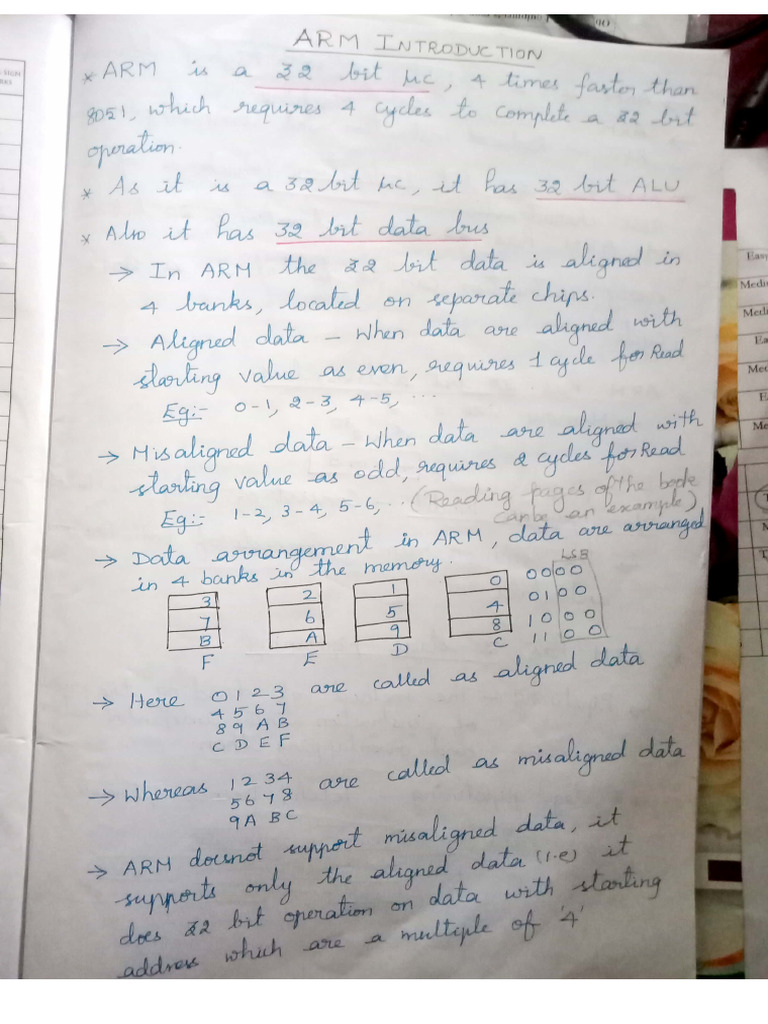 ARM INTRODUCTION
* ARM is a 32 bit μc, 4 times faster than
8051, which requires 4 cycles to complete a 32 bit
operation.
* As it is a 32 bit μc, it has 32 bit ALU
* Also it has 32 bit data bus
→ In ARM the 32 bit data is aligned in
4 banks, located on separate chips.
→ Aligned data – When data are aligned with
starting value as even, requires 1 cycle for Read
Eg:- 0-1, 2-3, 4-5, ...
→ Misaligned data – When data are aligned with
starting value as odd, requires 2 cycles for Read
Eg:- 1-2, 3-4, 5-6, .. (Reading pages of the book
can be an example)
→ Data arrangement in ARM, data are arranged
in 4 banks in the memory.
LSB
3 2 1 0 0000
7 6 5 4 0100
B A 9 8 1000
F E D C 1100
→ Here 0 1 2 3 are called as aligned data
4 5 6 7
8 9 A B
C D E F
→ Whereas 1 2 3 4 are called as misaligned data
5 6 7 8
9 A B C
→ ARM doesnot support misaligned data, it
supports only the aligned data (i.e) it
does 32 bit operation on data with starting
address which are a multiple of '4'
Easy
Medi
Medi
Ea
Med
E
Me